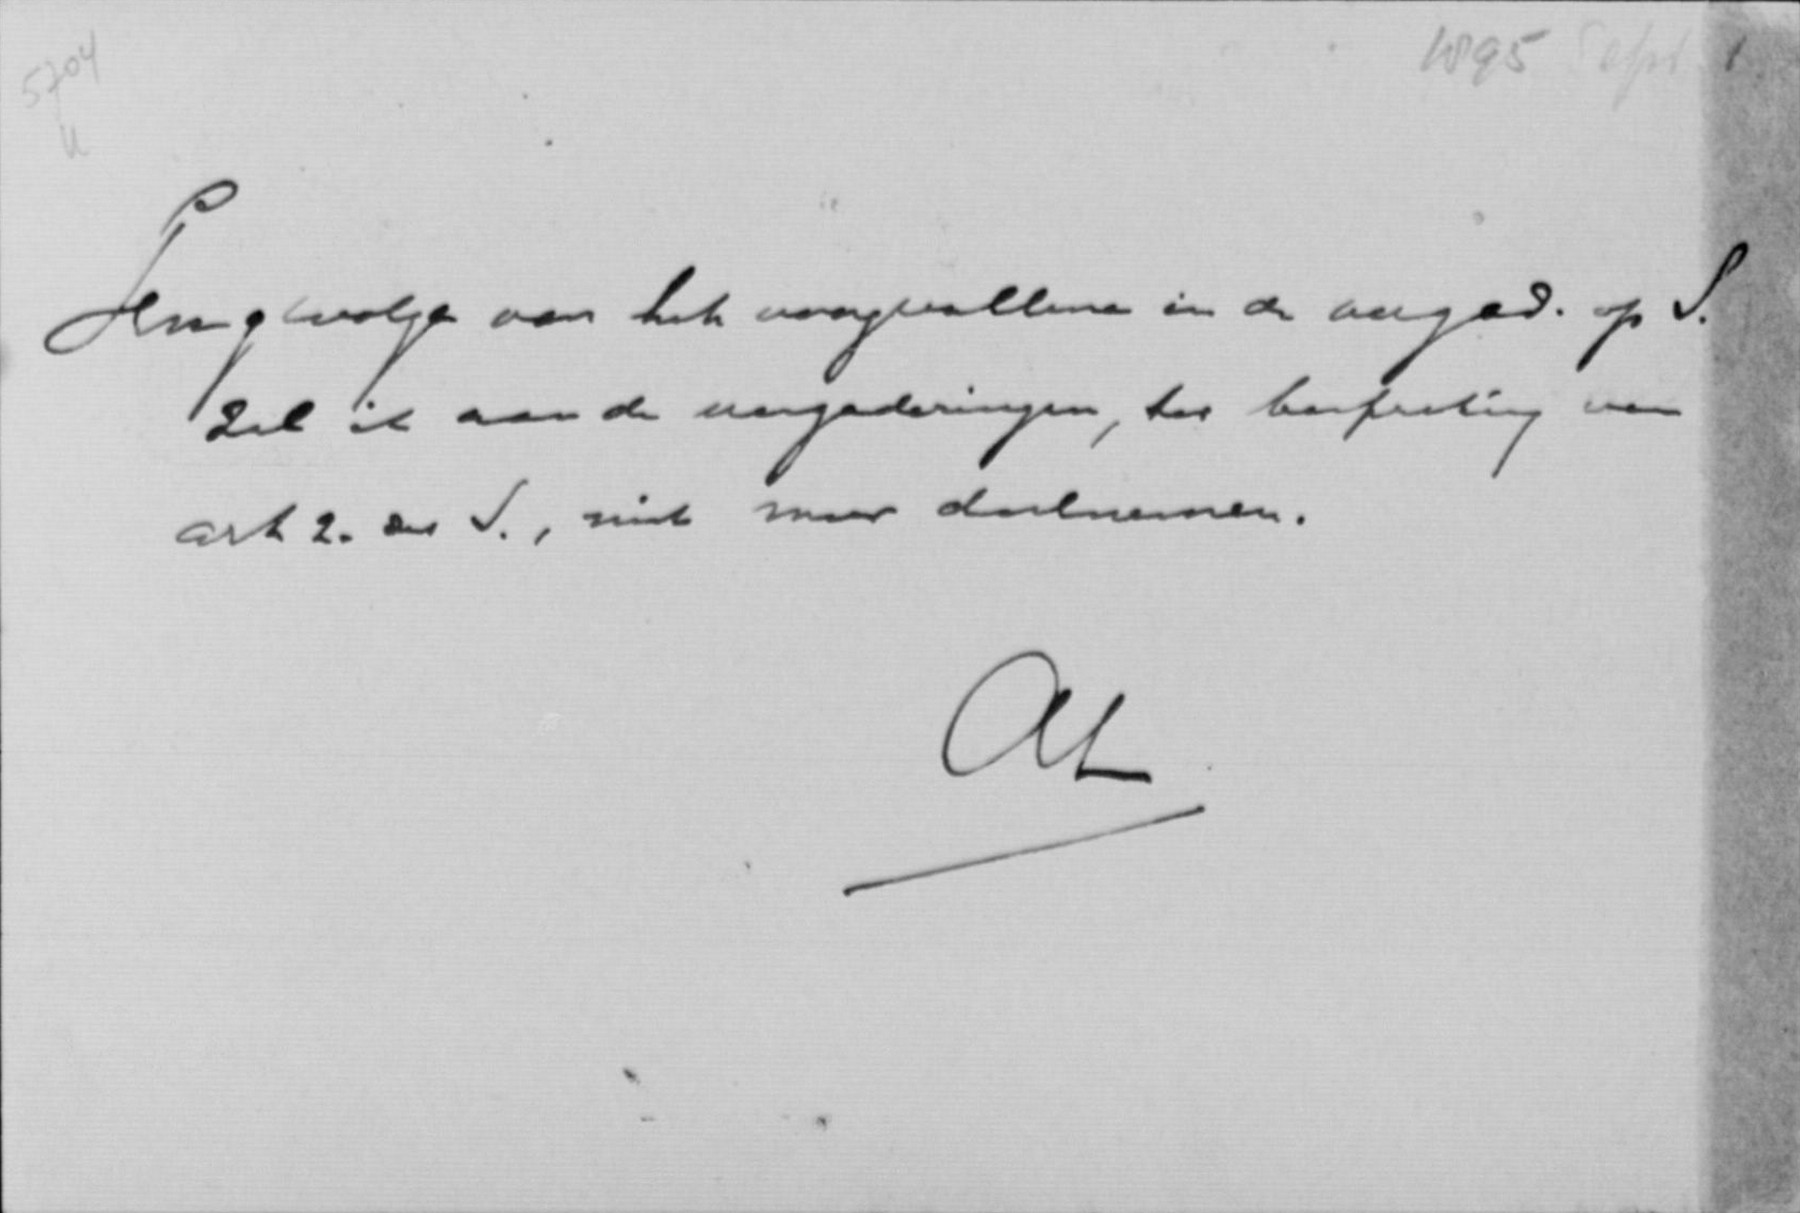 5704
1895 Sept. 1
Tengevolge van het voorgevallene in de vergad. op S.
zal ik aan de vergaderingen, ter bespreking van
art 2. der S., niet meer deelnemen.
AL